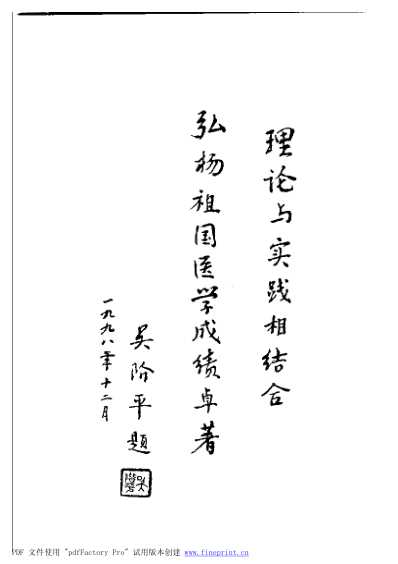 理论与实践相结合
弘杨祖国医学成绩卓著
吴阶平题
一九九八年十二月
PDF 文件使用 "pdfFactory Pro" 试用版本创建 www.fineprint.cn